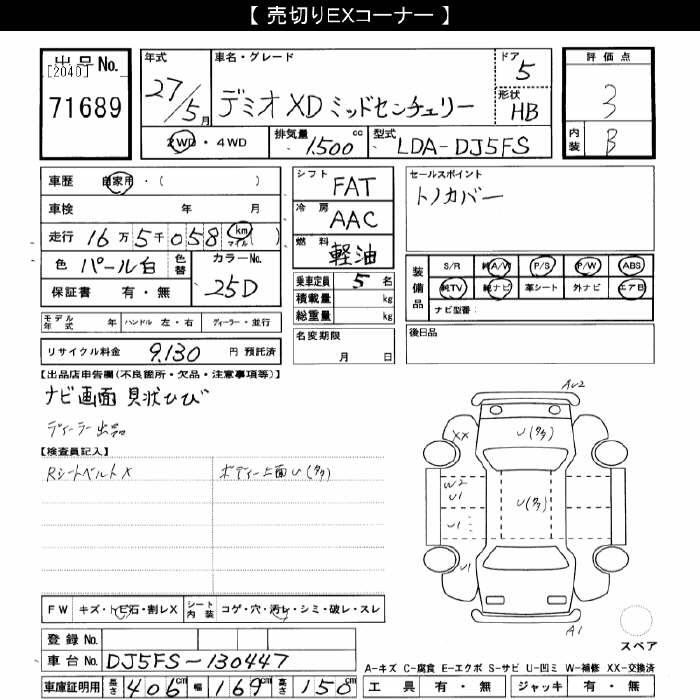 【 売切りEXコーナー 】
出品No. [2040] 71689
年式 27/5月
車名・グレード デミオ XD ミッドセンチュリー
ドア 5
形状 HB
評価点 3
内装 B
2WD・4WD
排気量 1500 cc
型式 LDA-DJ5FS
車歴 自家用・( )
車検 年 月
走行 16万5千058 km マイル ( )
色 パール白 色替
カラーNo. 25D
保証書 有・無
シフト FAT
冷房 AAC
燃料 軽油
乗車定員 5 名
積載量 kg
総重量 kg
セールスポイント
トノカバー
装備品 S/R 純A/W P/S P/W ABS
純TV 純ナビ 革シート 外ナビ エアB
ナビ型番:
モデル年式 年 ハンドル 左・右 ディーラー・並行
名変期限 月 日
後日品
リサイクル料金 9,130 円 預託済
【出品店申告欄(不良箇所・欠品・注意事項等)】
ナビ画面 貝状ひび
ディーラー出品
【検査員記入】
Rシートベルト X
ボディー上面U(多)
AU2
XX
U(多)
W2
U1
U(多)
U1
U1
A1
スペア
FW キズ・トビ石・割レX シート内装 コゲ・穴・汚レ・シミ・破レ・スレ
登録No.
車台No. DJ5FS-130447
車庫証明用 長さ 406 cm 幅 169 cm 高さ 150 cm
A-キズ C-腐食 E-エクボ S-サビ U-凹ミ W-補修 XX-交換済
工具 有・無 ジャッキ 有・無